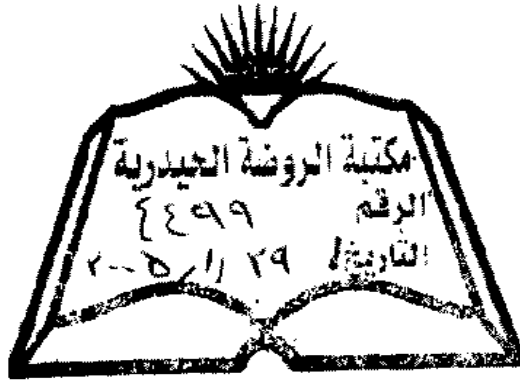 مكتبة الروضة الحيدرية
الرقم ٤٤٩٩
التاريخ ٢٩ / ١ / ٢٠٠٥